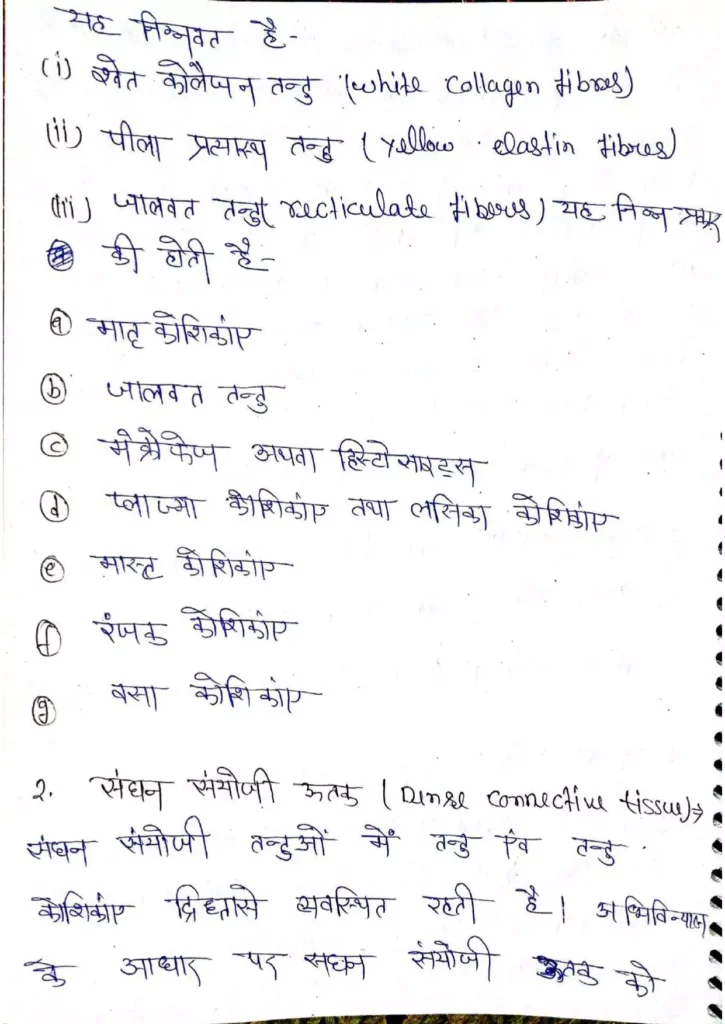 यह निम्नवत है-
(i) श्वेत कोलैजन तन्तु (white collagen fibres)
(ii) पीला प्रत्यास्थ तन्तु (yellow elastin fibres)
(iii) जालवत तन्तु( recticulate fibers) यह निम्न प्रकार
की होती है-
(a) मातृ कोशिकांए
(b) जालवत तन्तु
(c) मेक्रोफेज अथवा हिस्टोसाइट्स
(d) प्लाज्मा कोशिकांए तथा लसिका कोशिकांए
(e) मास्ट कोशिकांए
(f) रंजक कोशिकांए
(g) वसा कोशिकांए
2. संघन संयोजी ऊतक (Dense connective tissue)→
संघन संयोजी तन्तुओं में तन्तु एंव तन्तु
कोशिकांए द्रिढ़तासे व्यवस्थित रहती है। अभिविन्यास
के आधार पर सघन संयोजी ऊतक को